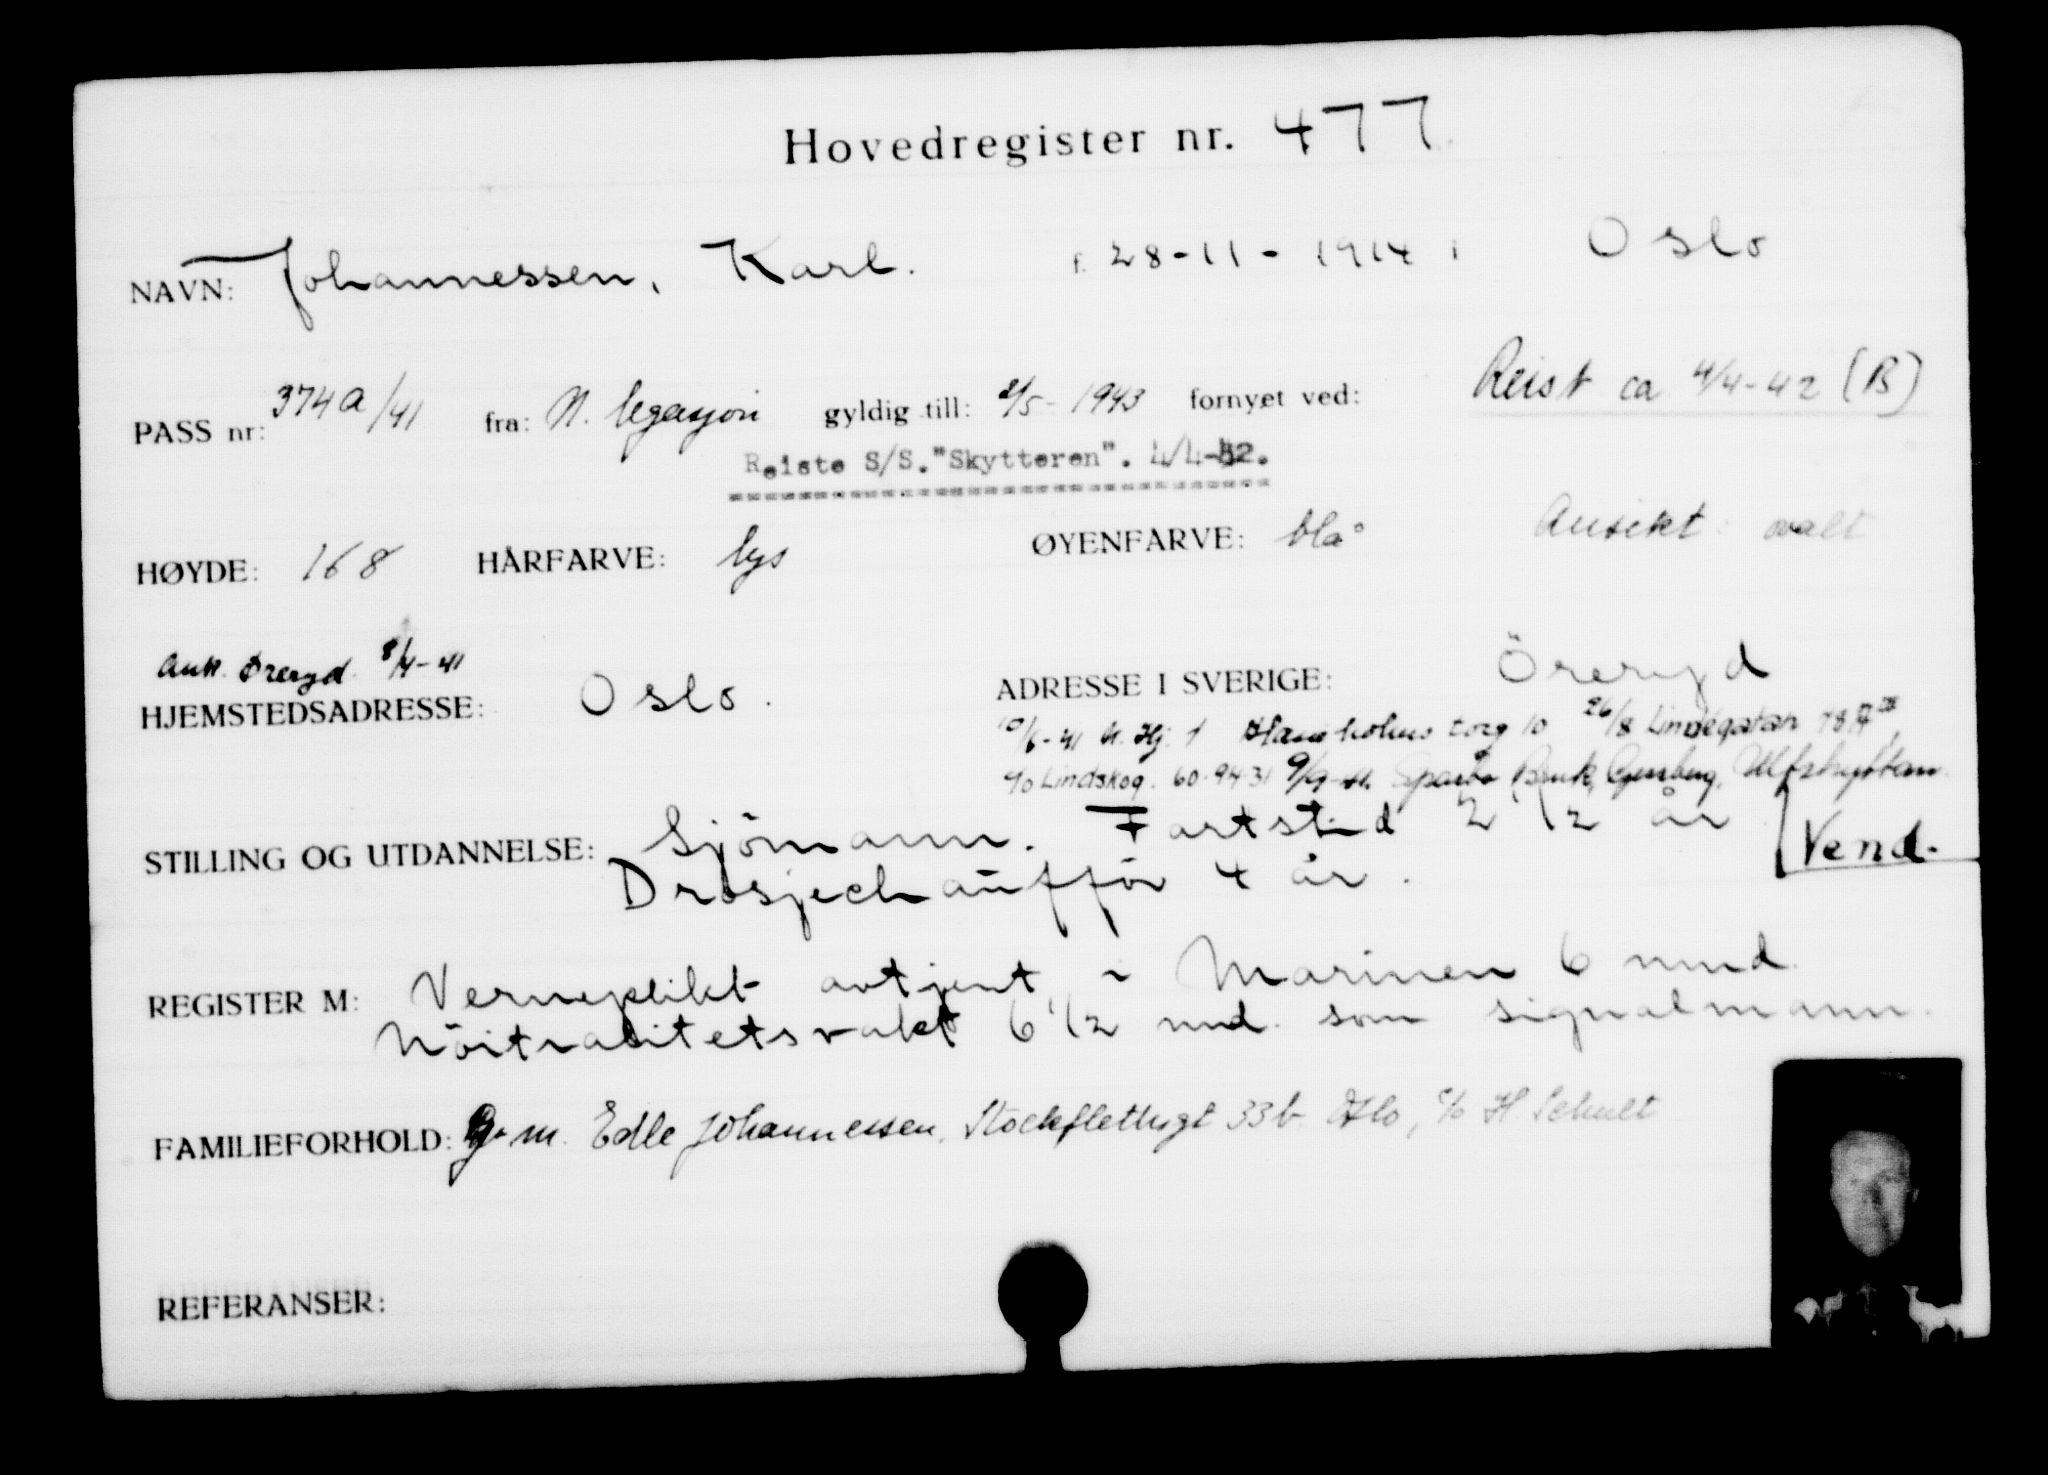 Hovedregister nr. 477
NAVN: Johannessen, Karl. f. 28-11-1914 i Oslo
PASS nr: 374a/41 fra: N. legasjon gyldig till: 8/5-1943 fornyet ved: Reist ca 4/4-42 (B)
Reiste S/S."Skytteren". 4/4-42.
HØYDE: 168 HÅRFARVE: lys ØYENFARVE: blå Ansikt: ovalt
Ank. Öreryd. 8/4-41
HJEMSTEDSADRESSE: Oslo. ADRESSE I SVERIGE: Öreryd
10/6-41 N. Hj. 1 torg 10 26/8 Lindegatan 18
c/o Lindskog. 60.94.31 9/9-41. Bruk, Ulfshyttan
STILLING OG UTDANNELSE: Sjömann. Fartstid 2 1/2 år
Drosjechaufför 4 år. Vend.
REGISTER M: Verneplikt avtjent i Marinen 6 mnd.
Nöitralitetsvakt 6 1/2 mnd. som signalmann.
FAMILIEFORHOLD: G. m. Edle Johannessen, Stockflethsgt 33b Oslo, c/o H. Schult
REFERANSER: